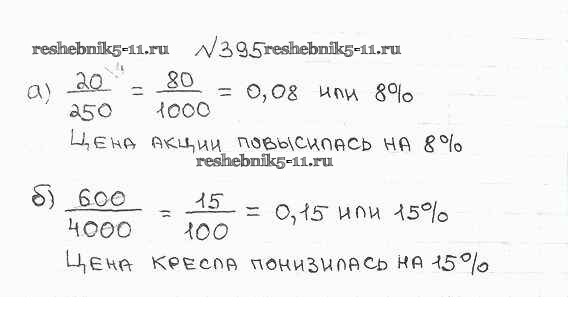 reshebnik5-11.ru №395 reshebnik5-11.ru
а) 20/250 = 80/1000 = 0,08 или 8%
Цена акции повысилась на 8%
reshebnik5-11.ru
б) 600/4000 = 15/100 = 0,15 или 15%
Цена кресла понизилась на 15%